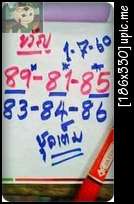 ขวัญ
1-7-60
89-81-85
83-84-86
ชุดเต็ม
[186x330]upic.me